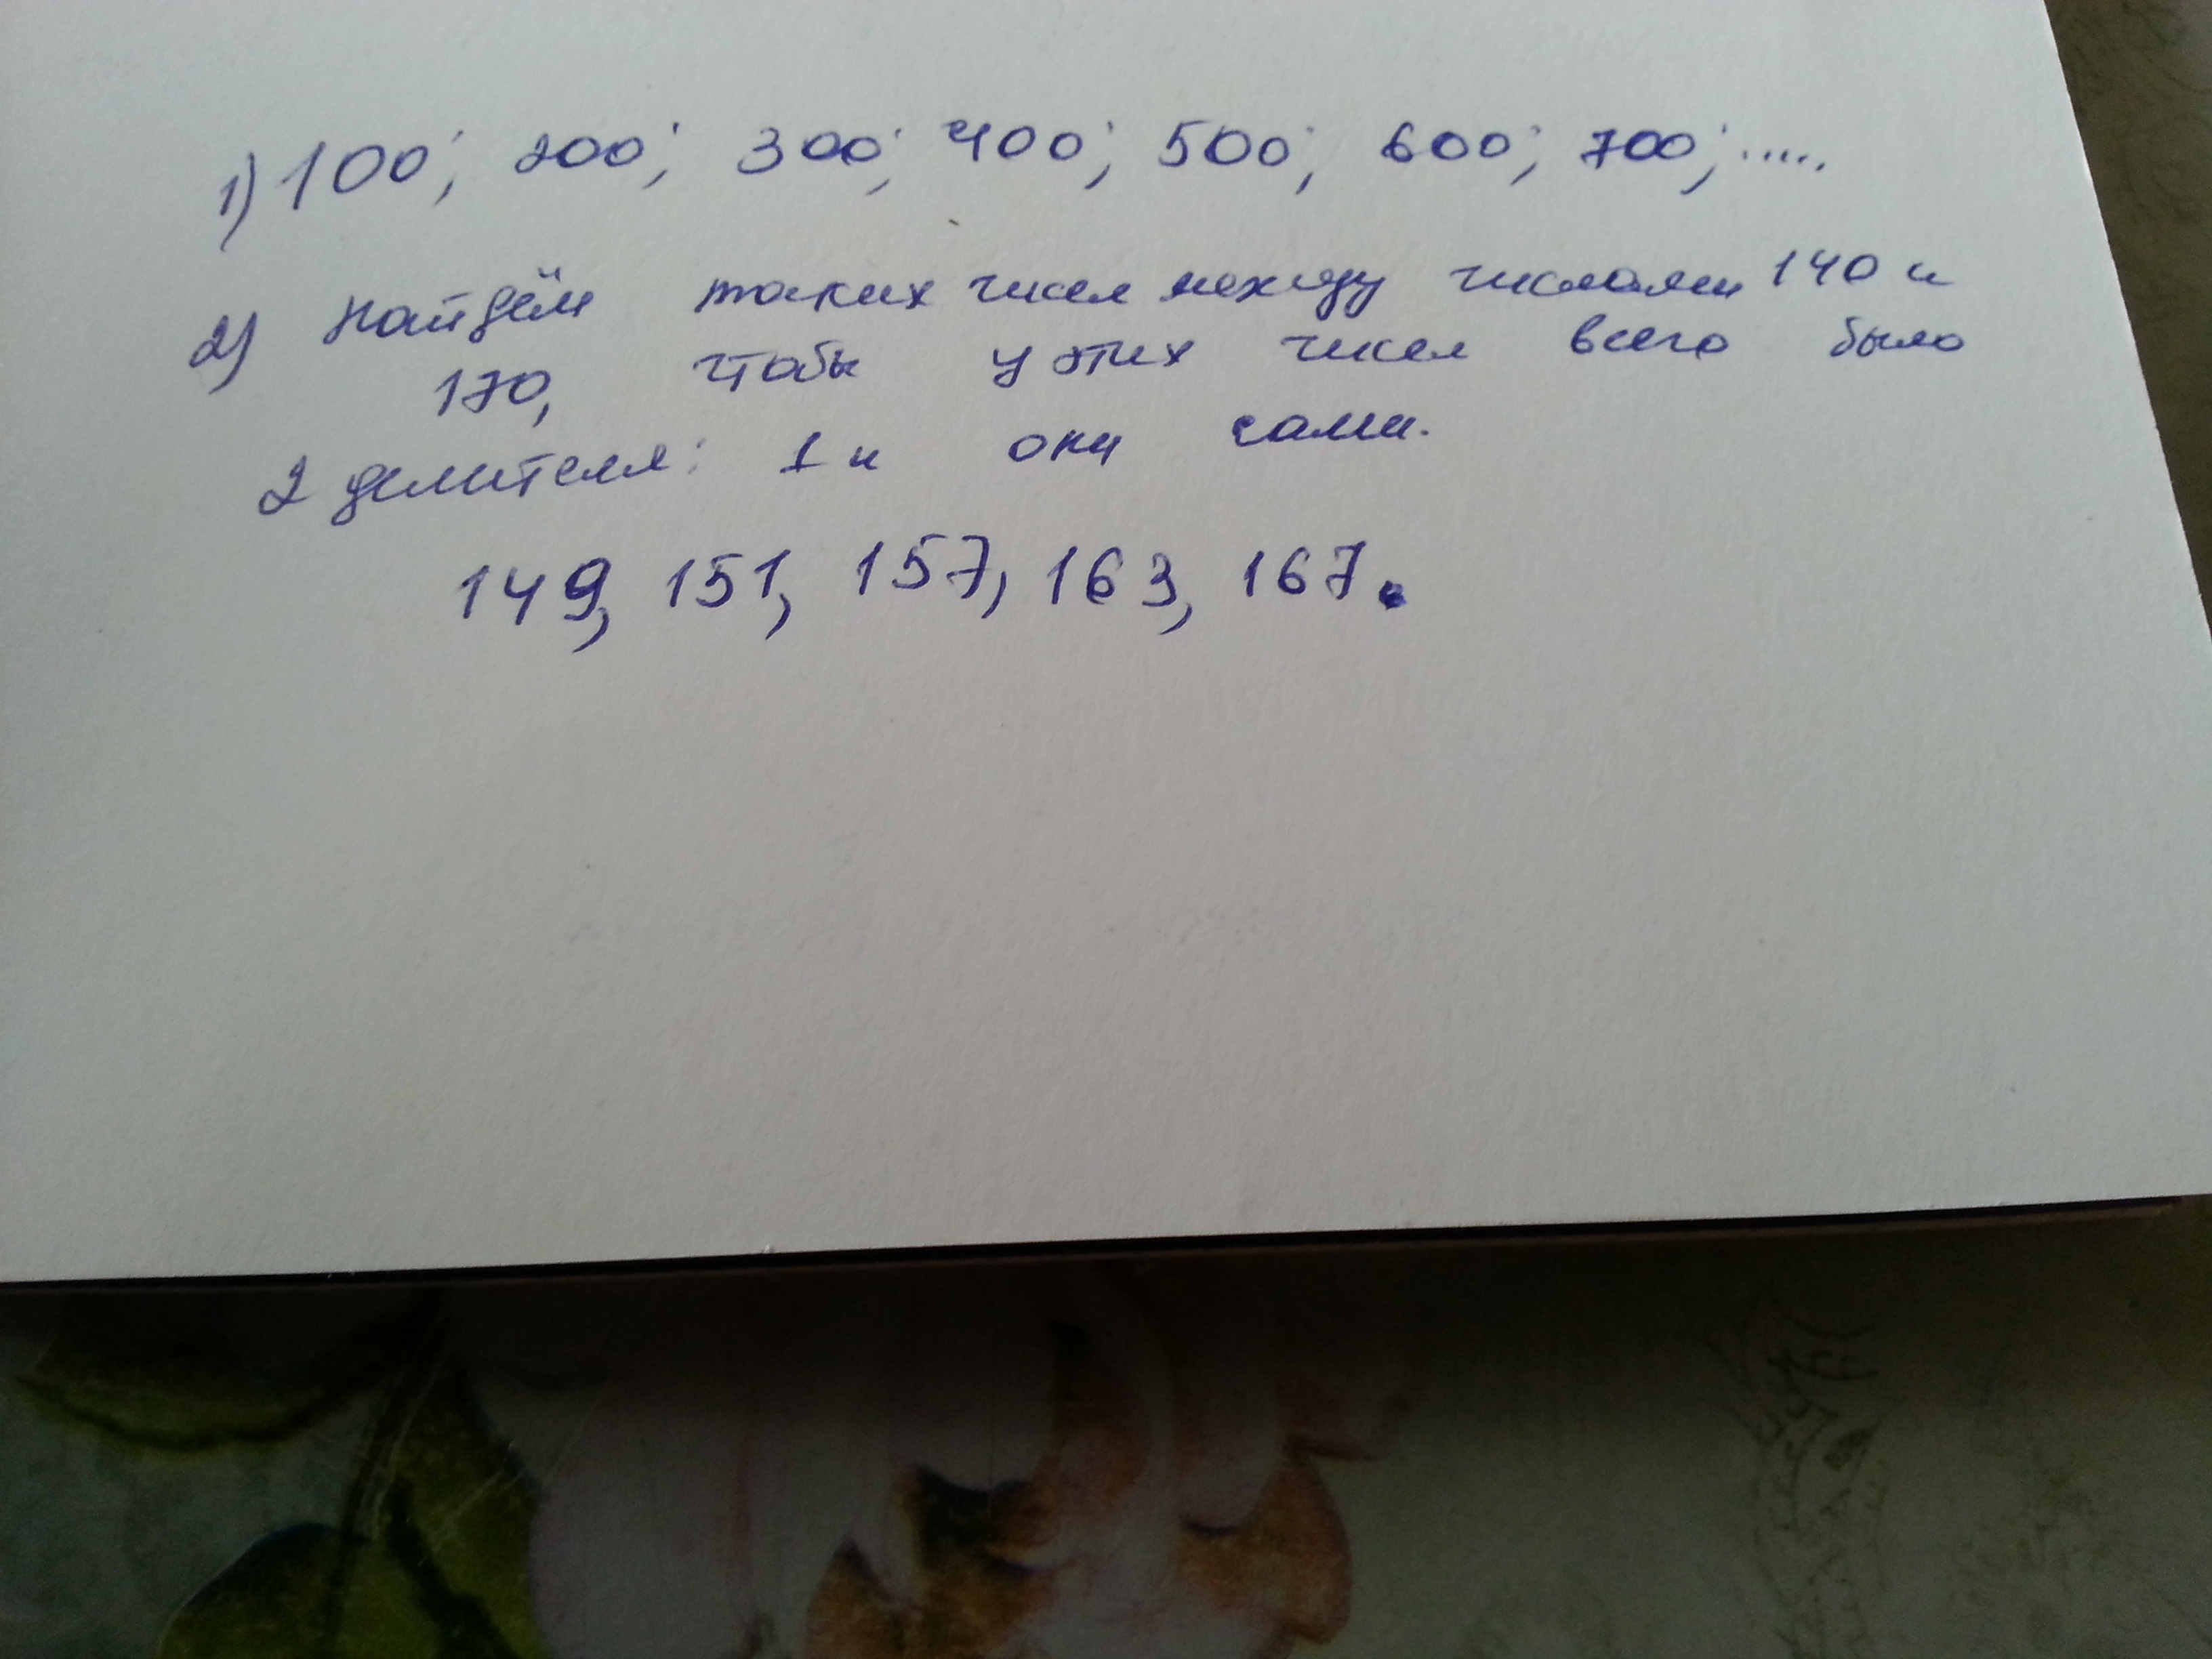 1) 100; 200; 300; 400; 500; 600; 700; .....
2) Найдём таких чисел между числами 140 и
170, чтобы у этих чисел всего было
2 делителя: 1 и они сами.
149, 151, 157, 163, 167.